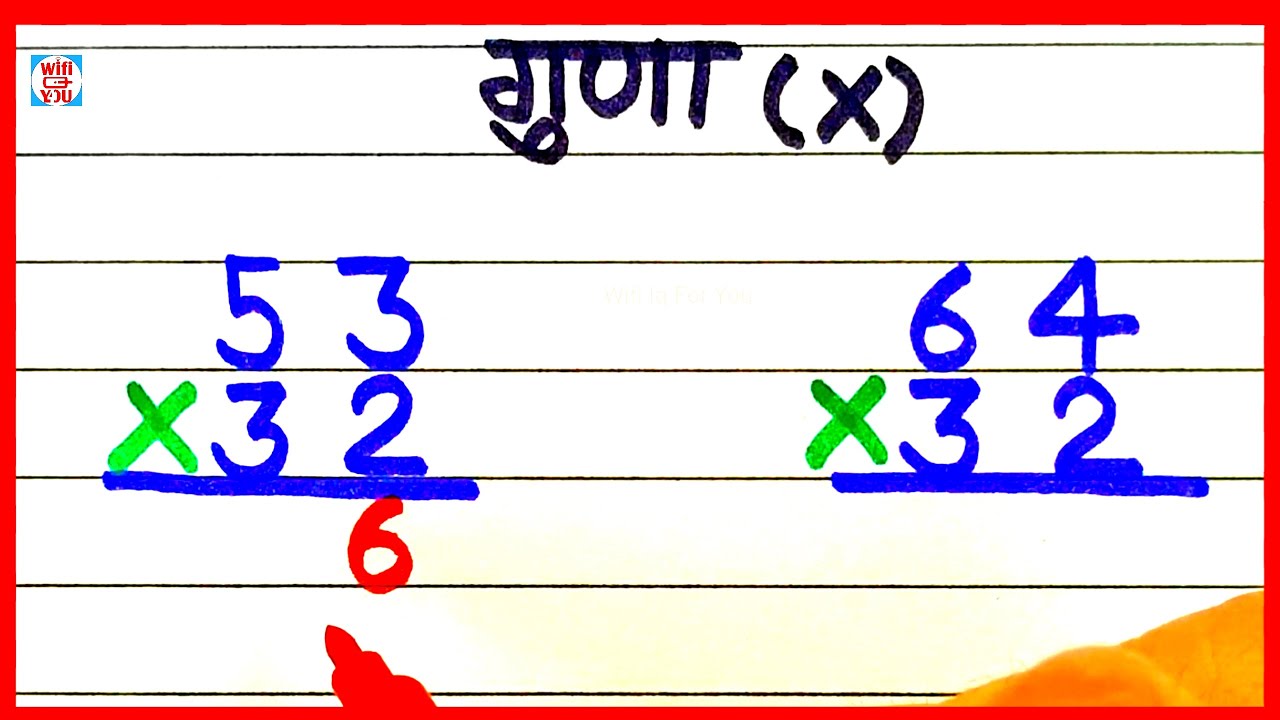 Wifi
YOU
गुणा (x)
Wifi Iq For You
53
x32
6
64
x32